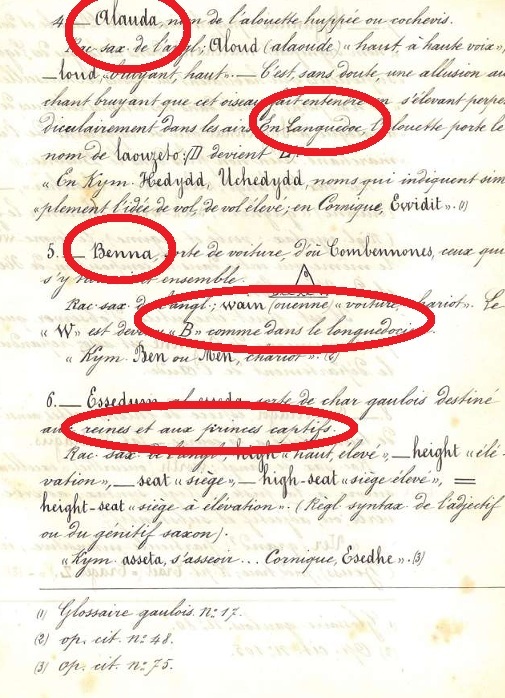 4. — Alauda, nom de l'alouette huppée ou cochevis.
Rac. sax. de l'angl; Aloud (alaoude) « haut, à haute voix »,
— loud, « bruyant, haut ». — C'est, sans doute, une allusion au
chant bruyant que cet oiseau fait entendre en s'élevant perpen
diculairement dans les airs. En Languedoc, l'alouette porte le
nom de laouzeto: D devient Z.
« En Kym. Hedydd, Uchedydd, noms qui indiquent sim
« plement l'idée de vol, de vol élevé; en Cornique, Ewidit ». (1)
5. — Benna, sorte de voiture, d'où Combennones, ceux qui
s'y ensemble.
Rac. sax. de l'angl; wain (ouenne) « voiture, chariot ». Le
« W » est devenu « B » comme dans le languedocien.
« Kym. Ben ou Men, chariot ». (2)
6. — Essedum, al. esseda, sorte de char gaulois destiné
aux reines et aux princes captifs.
Rac. sax. de l'angl; high « haut, élevé », — height « élé
vation », — seat « siège », — high-seat « siège élevé », =
height-seat « siège à élévation ». (Règl. syntax. de l'adjectif
ou du génitif saxon).
« Kym. asseta, s'asseoir... Cornique, Esedhe ». (3)
(1) Glossaire gaulois. n: 17.
(2) op. cit. n: 48.
(3) op. cit. n: 75.